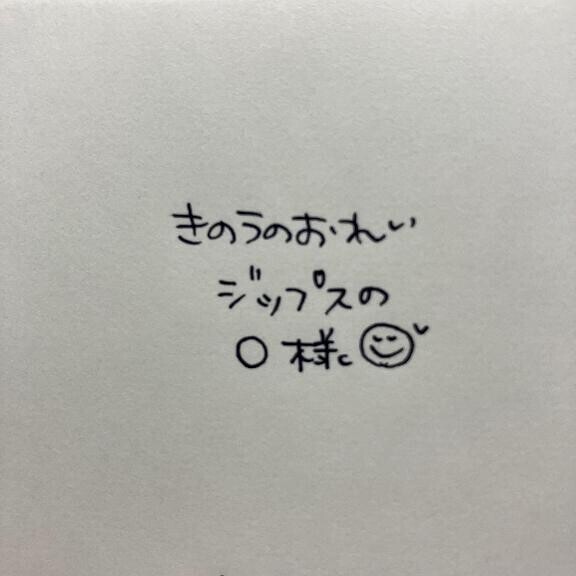 きのうのおれい
ジップスの
○様に